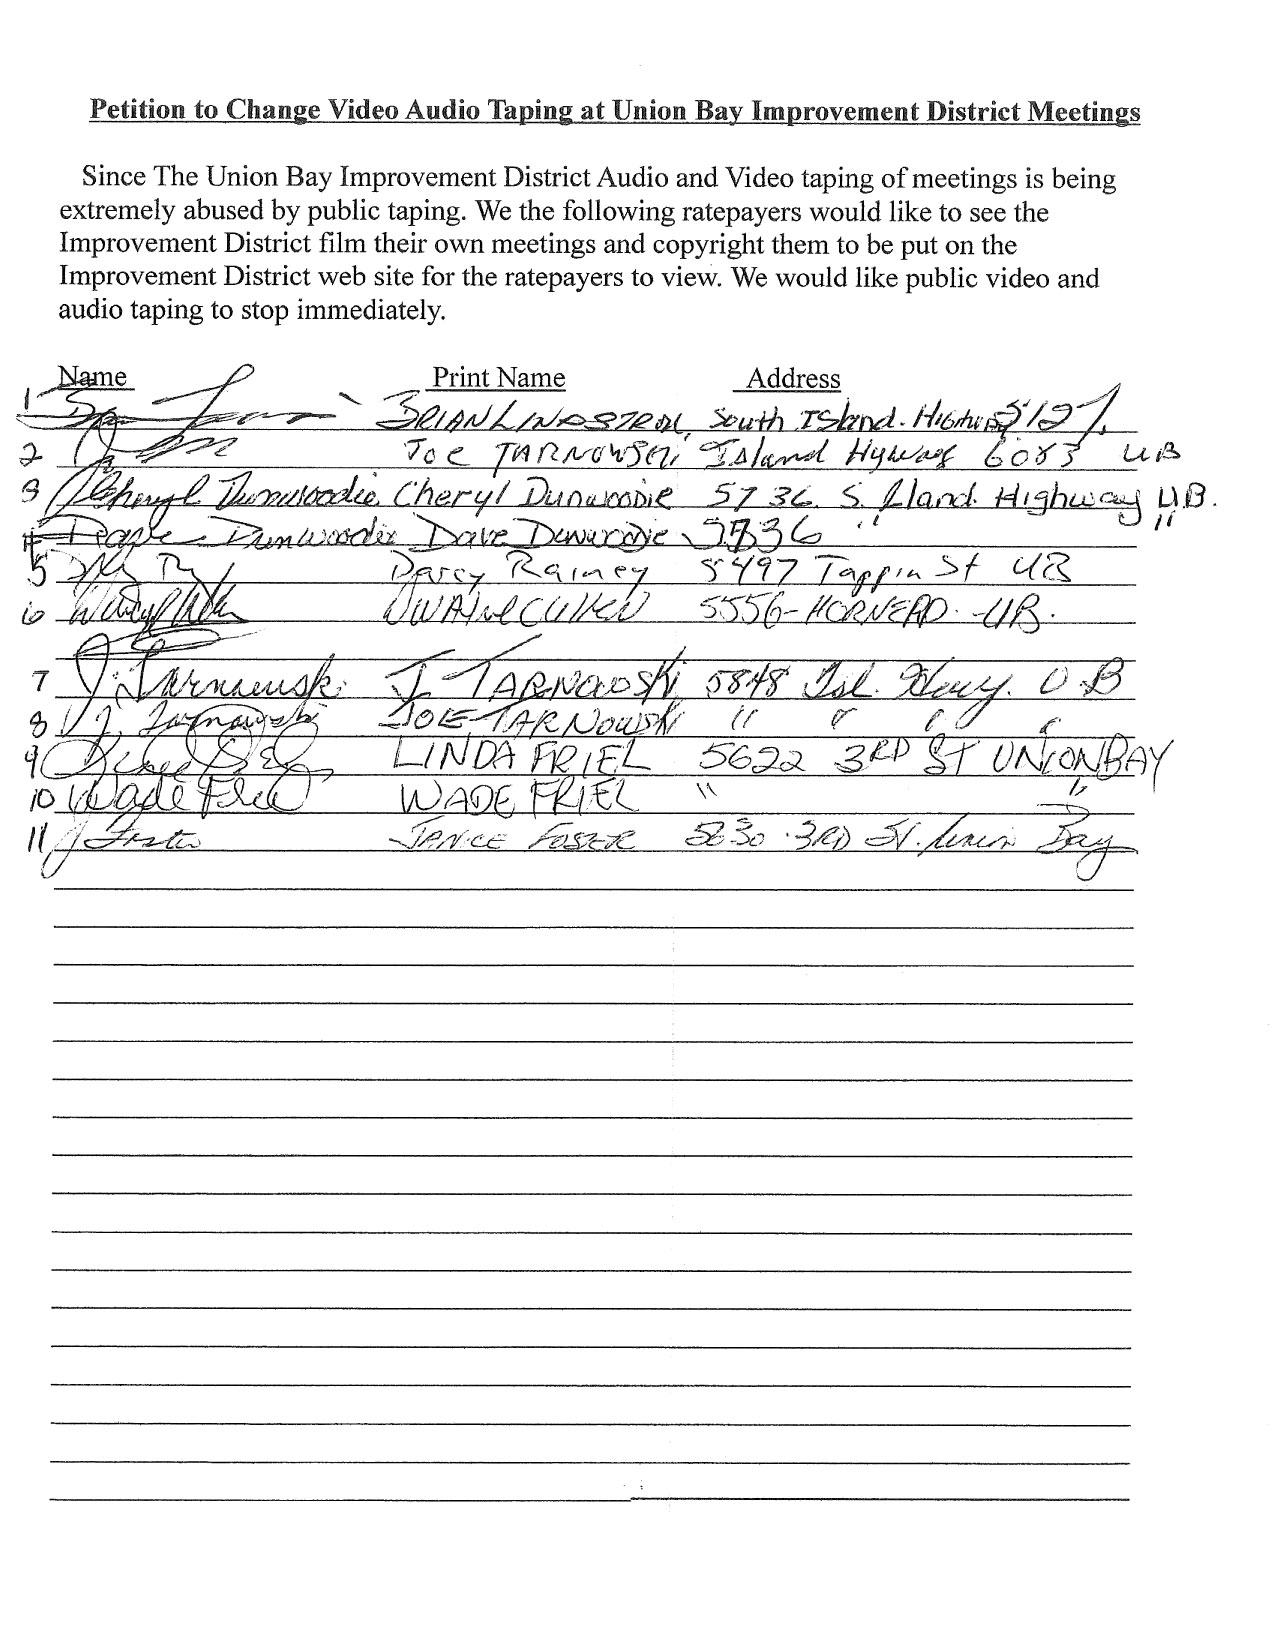 Petition to Change Video Audio Taping at Union Bay Improvement District Meetings
Since The Union Bay Improvement District Audio and Video taping of meetings is being
extremely abused by public taping. We the following ratepayers would like to see the
Improvement District film their own meetings and copyright them to be put on the
Improvement District web site for the ratepayers to view. We would like public video and
audio taping to stop immediately.
Name Print Name Address
1 BRIAN LINDSTROM South Island. Highway 5127
2 JOE TARNOWSKI Island Hyway 6083 UB
3 Cheryl Dunwoodie Cheryl Dunwoodie 5736 S. Island Highway U.B.
4 Dunwoodie Dave Dunwoodie 5736 " "
5 Darcy Rainey 5497 Tappin St UB
6 DWAINE CULLEN 5556-HORNE RD. -UB.
7 J. Tarnowski J TARNOWSKI 5848 Isl. Hwy. U.B
8 J. Tarnowski JOE TARNOWSKI " " " "
9 LINDA FRIEL 5622 3RD ST UNION BAY
10 Wade Friel WADE FRIEL " "
11 J Foster JANICE FOSTER 5830 · 3RD St. Union Bay